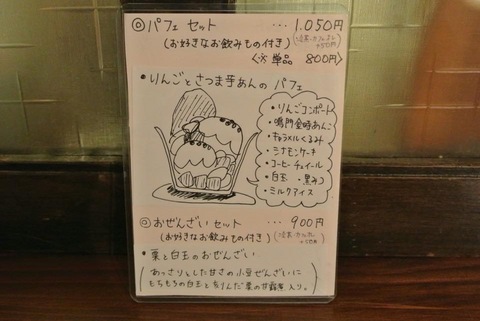 ◎パフェ セット ・・・ 1,050円
(お好きなお飲みもの付き)
<※単品 800円>
・りんごとさつま芋あんの パフェ
・りんごコンポート
・鳴門金時あんこ
・キャラメルくるみ
・シナモンケーキ
・コーヒーチュイール
・白玉 ・黒みつ
・ミルクアイス
◎おぜんざいセット ・・・ 900円
(お好きなお飲みもの付き)
・栗と白玉のおぜんざい
(あっさりとした甘さの小豆ぜんざいに
もちもちの白玉と刻んだ栗の甘露煮入り。)